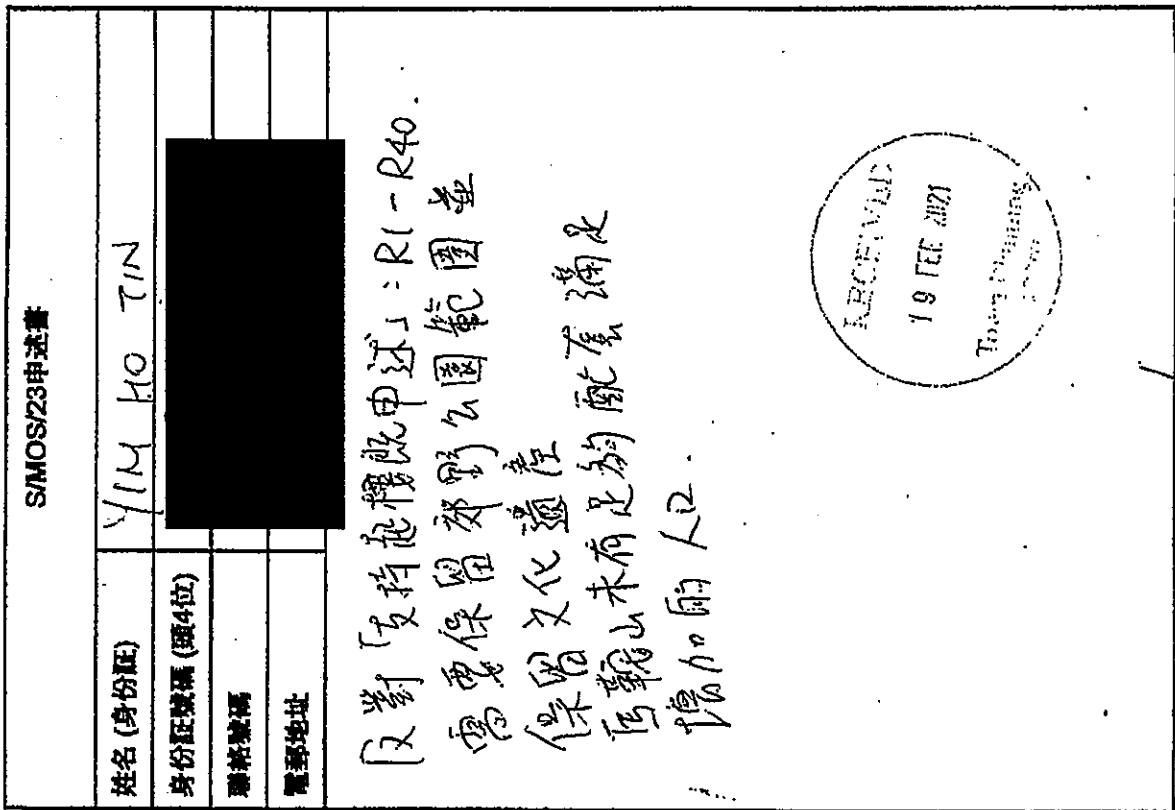 S/MOS/23申述書
姓名 (身份証) YIM HO TIN
身份証號碼 (頭4位)
聯絡號碼
電郵地址
反對「支持起樓既申述」：R1 - R40.
需要保留郊野公園範圍並
保留文化遺產
馬鞍山未有足夠配套滿足
增加的人口.
RECEIVED
19 FEB 2021
Town Planning